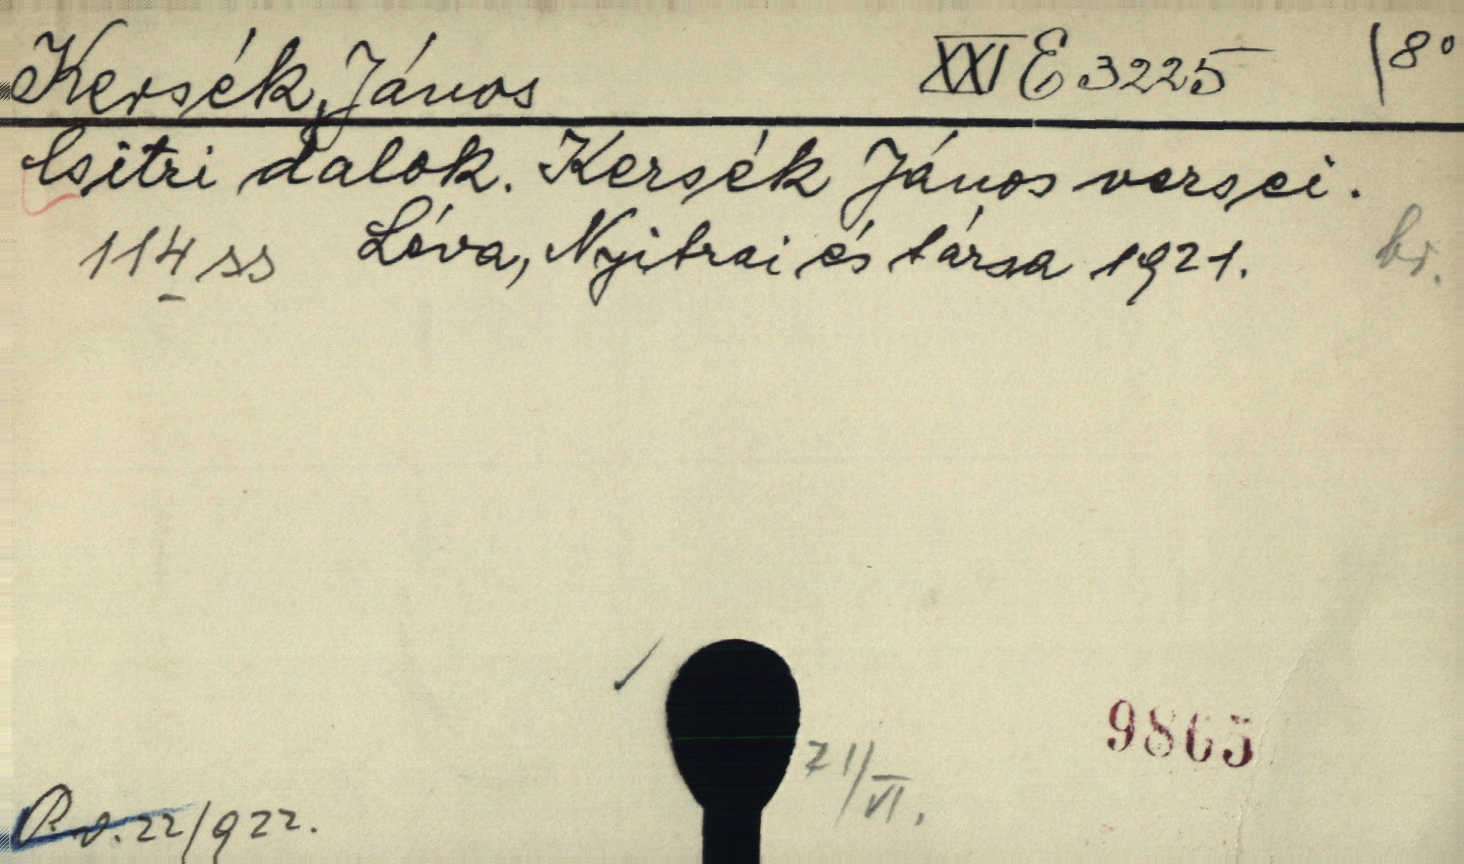 Kersék, János XXI E 3225 8°
Csitri dalok. Kersék János versei.
114 ss Léva, Nyitrai és társa 1921. br.
9865
71/VI.
P. v. 22/922.